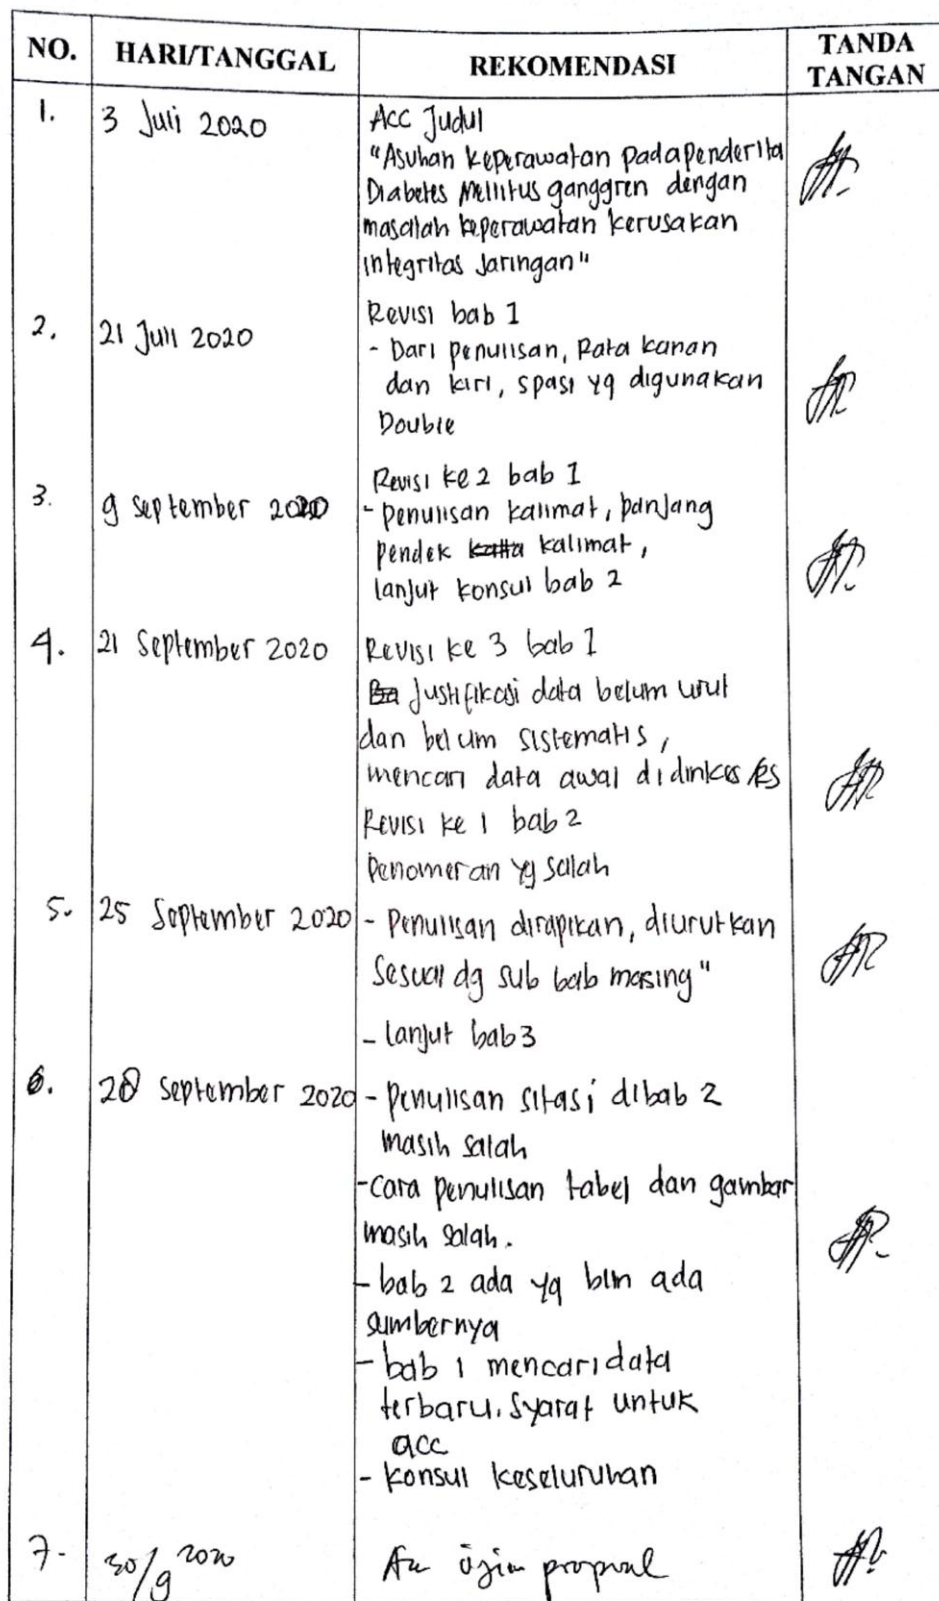 NO. HARI/TANGGAL REKOMENDASI TANDA TANGAN
1. 3 Juli 2020 Acc Judul
"Asuhan keperawatan pada penderita
Diabetes Mellitus ganggren dengan
masalah keperawatan kerusakan
integritas Jaringan"
2. 21 Juli 2020 Revisi bab 1
- Dari penulisan, Rata kanan
dan kiri, spasi yg digunakan
Double
3. 9 September 2020 Revisi ke 2 bab 1
- penulisan kalimat, panjang
pendek kalimat,
lanjut konsul bab 2
4. 21 September 2020 Revisi ke 3 bab 1
Justifikasi data belum urut
dan belum sistematis,
mencari data awal di dinkes/RS
Revisi ke 1 bab 2
Penomeran yg salah
5. 25 September 2020 - Penulisan dirapikan, diurutkan
Sesuai dg sub bab masing"
- lanjut bab 3
6. 28 September 2020 - Penulisan sitasi dibab 2
masih salah
- cara penulisan tabel dan gambar
masih salah.
- bab 2 ada yg blm ada
sumbernya
- bab 1 mencari data
terbaru. Syarat untuk
acc
- konsul keseluruhan
7. 30/9 2020 Acc ujian proposal